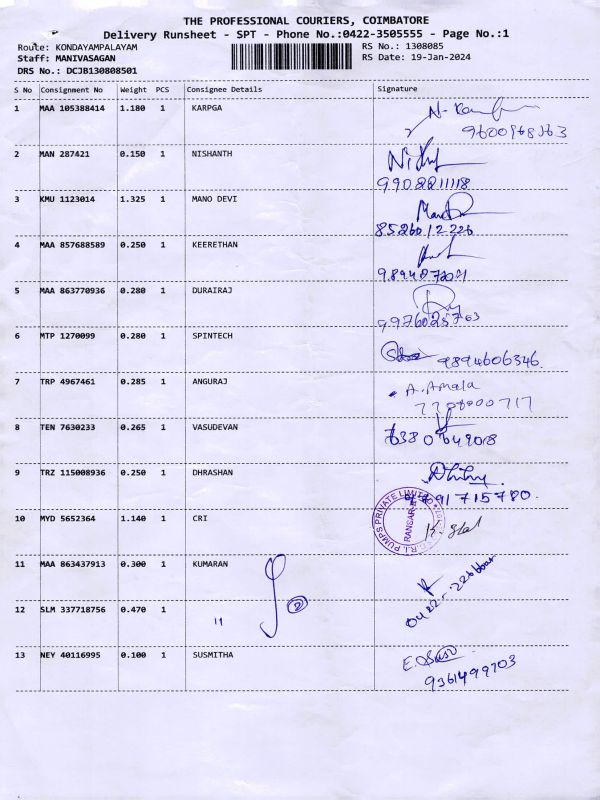 THE PROFESSIONAL COURIERS, COIMBATORE
Delivery Runsheet - SPT - Phone No.:0422-3505555 - Page No.:1
Route: KONDAYAMPALAYAM RS No.: 1308085
Staff: MANIVASAGAN RS Date: 19-Jan-2024
DRS No.: DCJB130808501
S No Consignment No Weight PCS Consignee Details Signature
1 MAA 105388414 1.180 1 KARPGA
2 MAN 287421 0.150 1 NISHANTH
9908211118
3 KMU 1123014 1.325 1 MANO DEVI
8526012226
4 MAA 857688589 0.250 1 KEERETHAN
5 MAA 863770936 0.280 1 DURAIRAJ
6 MTP 1270099 0.280 1 SPINTECH
9894606346
7 TRP 4967461 0.285 1 ANGURAJ
A. Amala
7708000717
8 TEN 7630233 0.265 1 VASUDEVAN
9 TRZ 115008936 0.250 1 DHRASHAN
10 MYD 5652364 1.140 1 CRI
PUMPS PRIVATE LIMITED
11 MAA 863437913 0.300 1 KUMARAN
12 SLM 337718756 0.470 1 11
2
13 NEY 40116995 0.100 1 SUSMITHA
9361499703